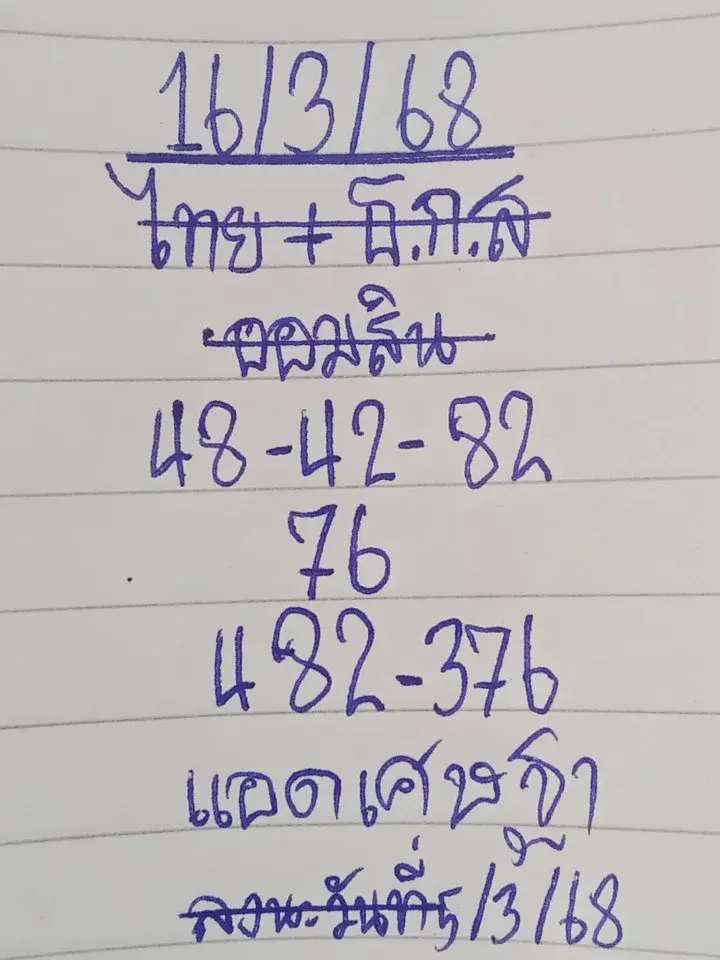 16/3/68
ไทย + ธ.ก.ส
ออมสิน
48-42-82
76
482-376
แอดเศษฐา
วันที่5/3/68